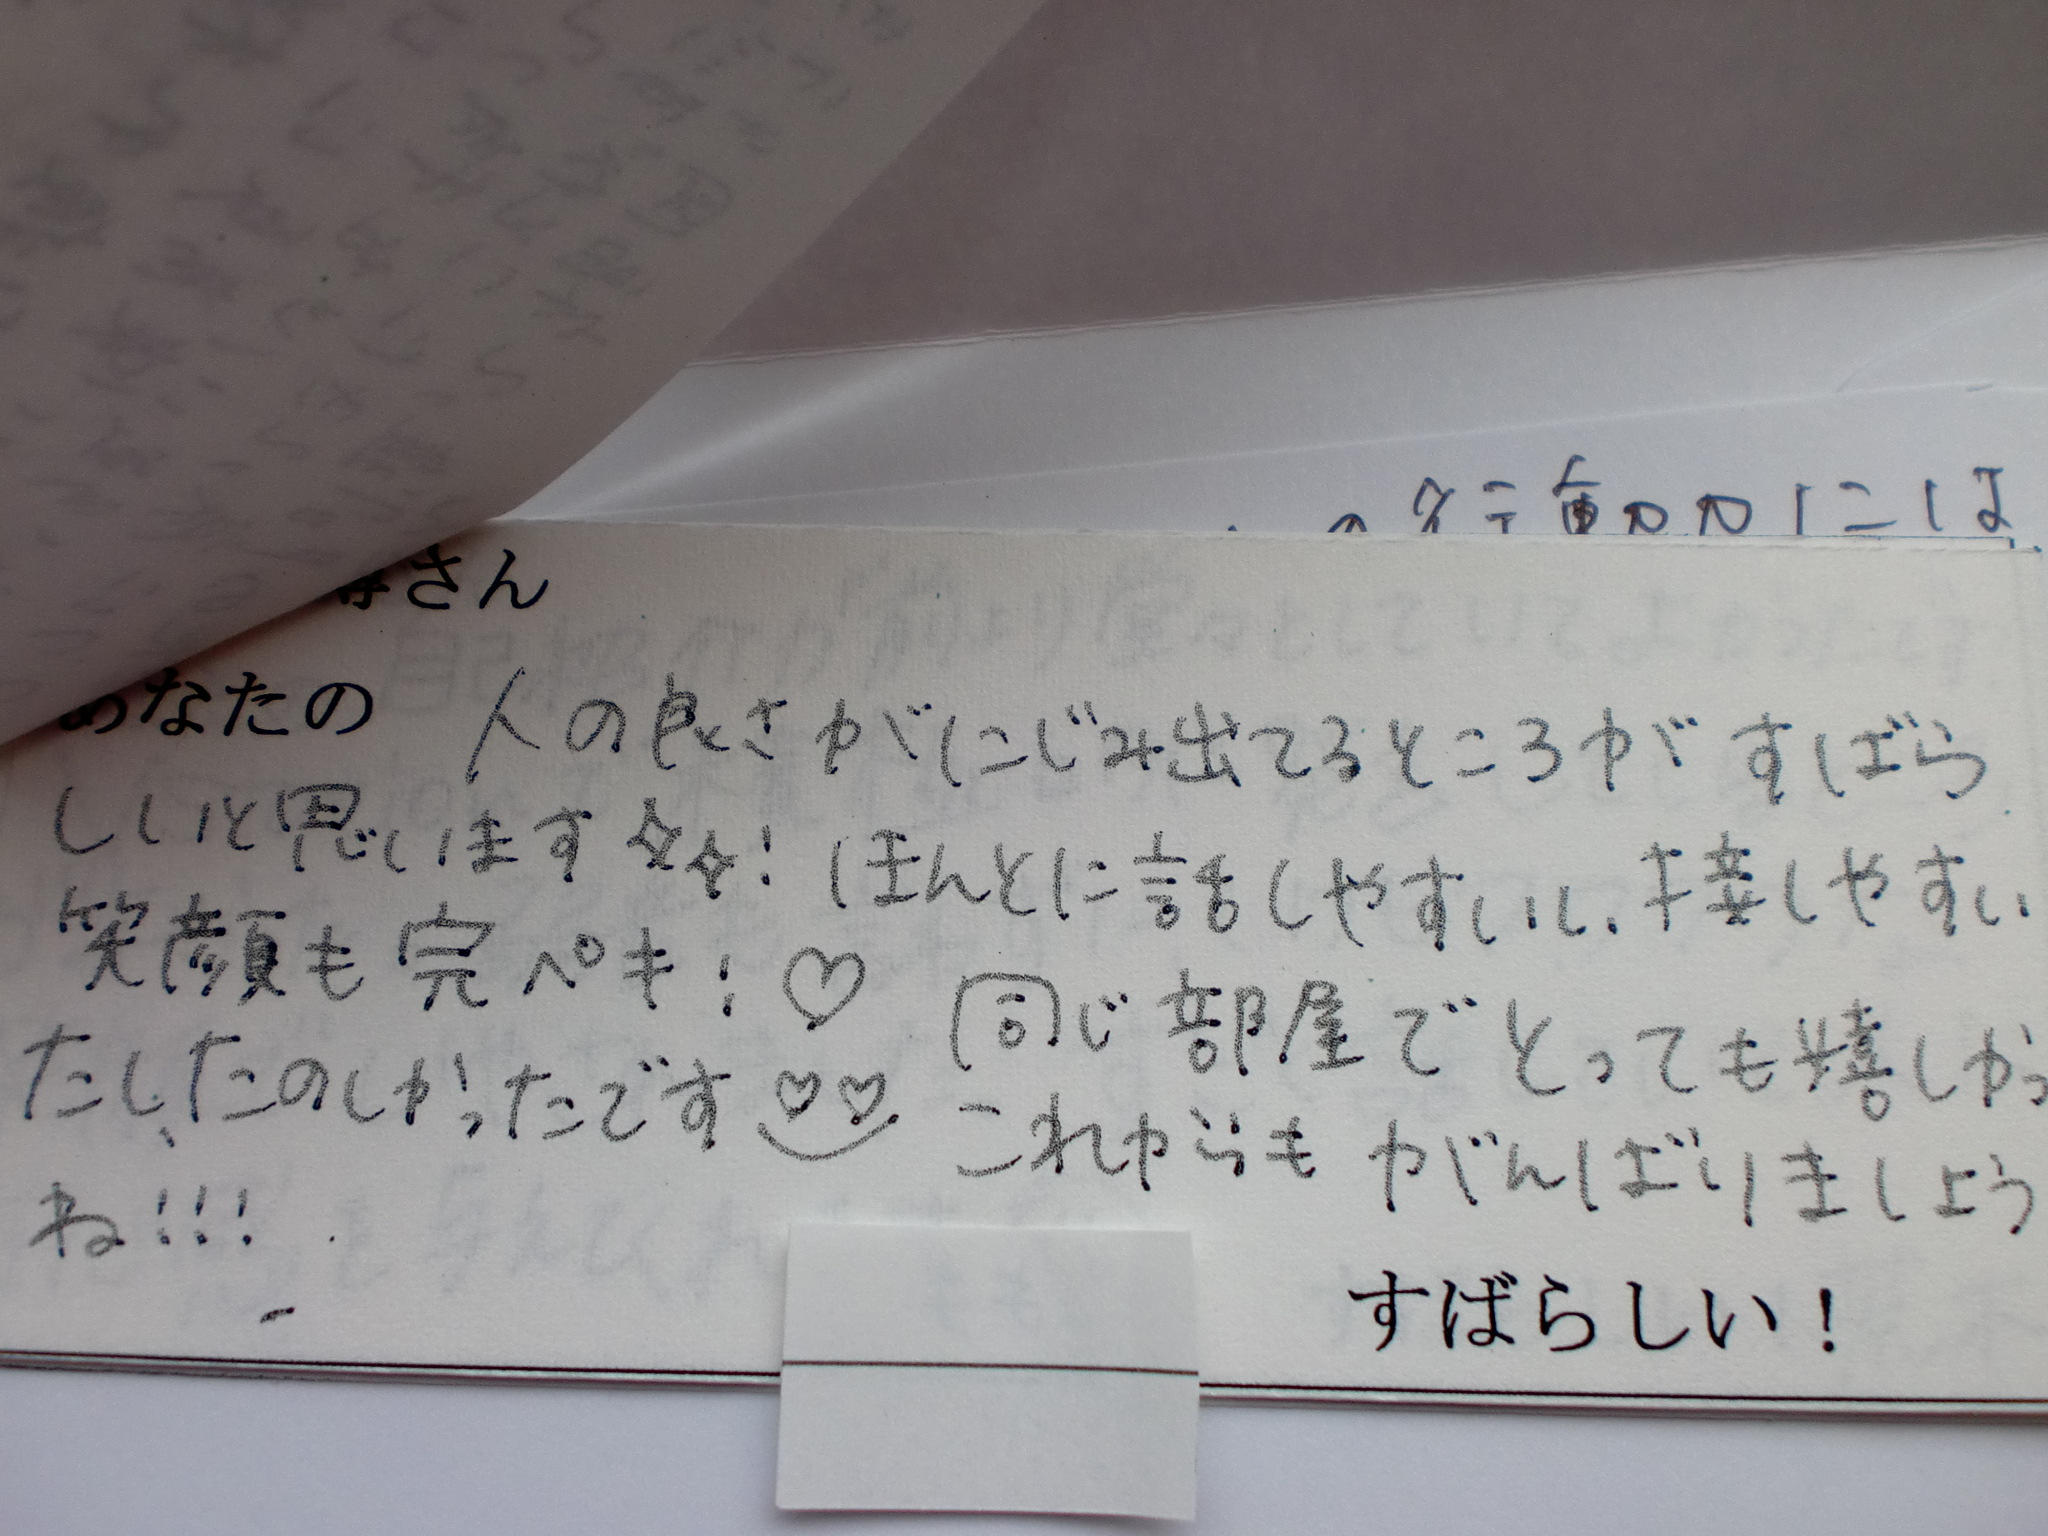 の行動力には
さん
あなたの 人の良さがにじみ出てるところが すばら
しいと思います!ほんとに話しやすいし、接しやすい
笑顔も完ペキ!♡ 同じ部屋でとっても嬉しかっ
たし、たのしかったです これからも がんばりましょう
ね!!!
すばらしい!